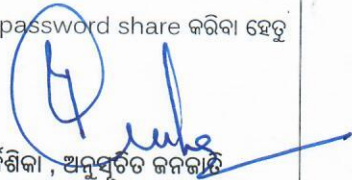 password share କରିବା ହେତୁ
ଅନୁସୂଚିତ ଜନଜାତି